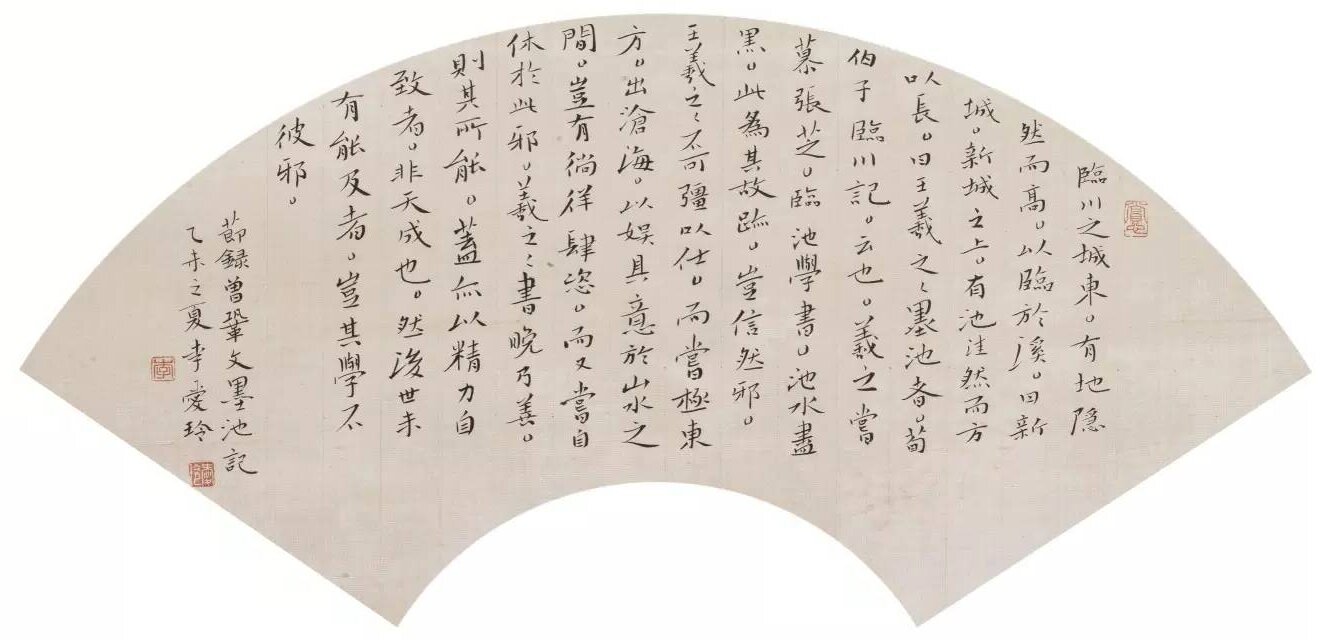 臨川之城東。有地隱
然而高。以臨於溪。曰新
城。新城之上。有池洼然而方
以長。曰王羲之〻墨池者。荀
伯子臨川記。云也。羲之嘗
慕張芝。臨池學書。池水盡
黑。此為其故跡。豈信然邪。
王羲之〻不可彊以仕。而嘗極東
方。出滄海。以娛其意於山水之
間。豈有徜徉肆恣。而又嘗自
休於此邪。羲之〻書晚乃善。
則其所能。蓋亦以精力自
致者。非天成也。然後世未
有能及者。豈其學不
彼邪。
節録曾鞏文墨池記
乙未之夏李愛玲
李